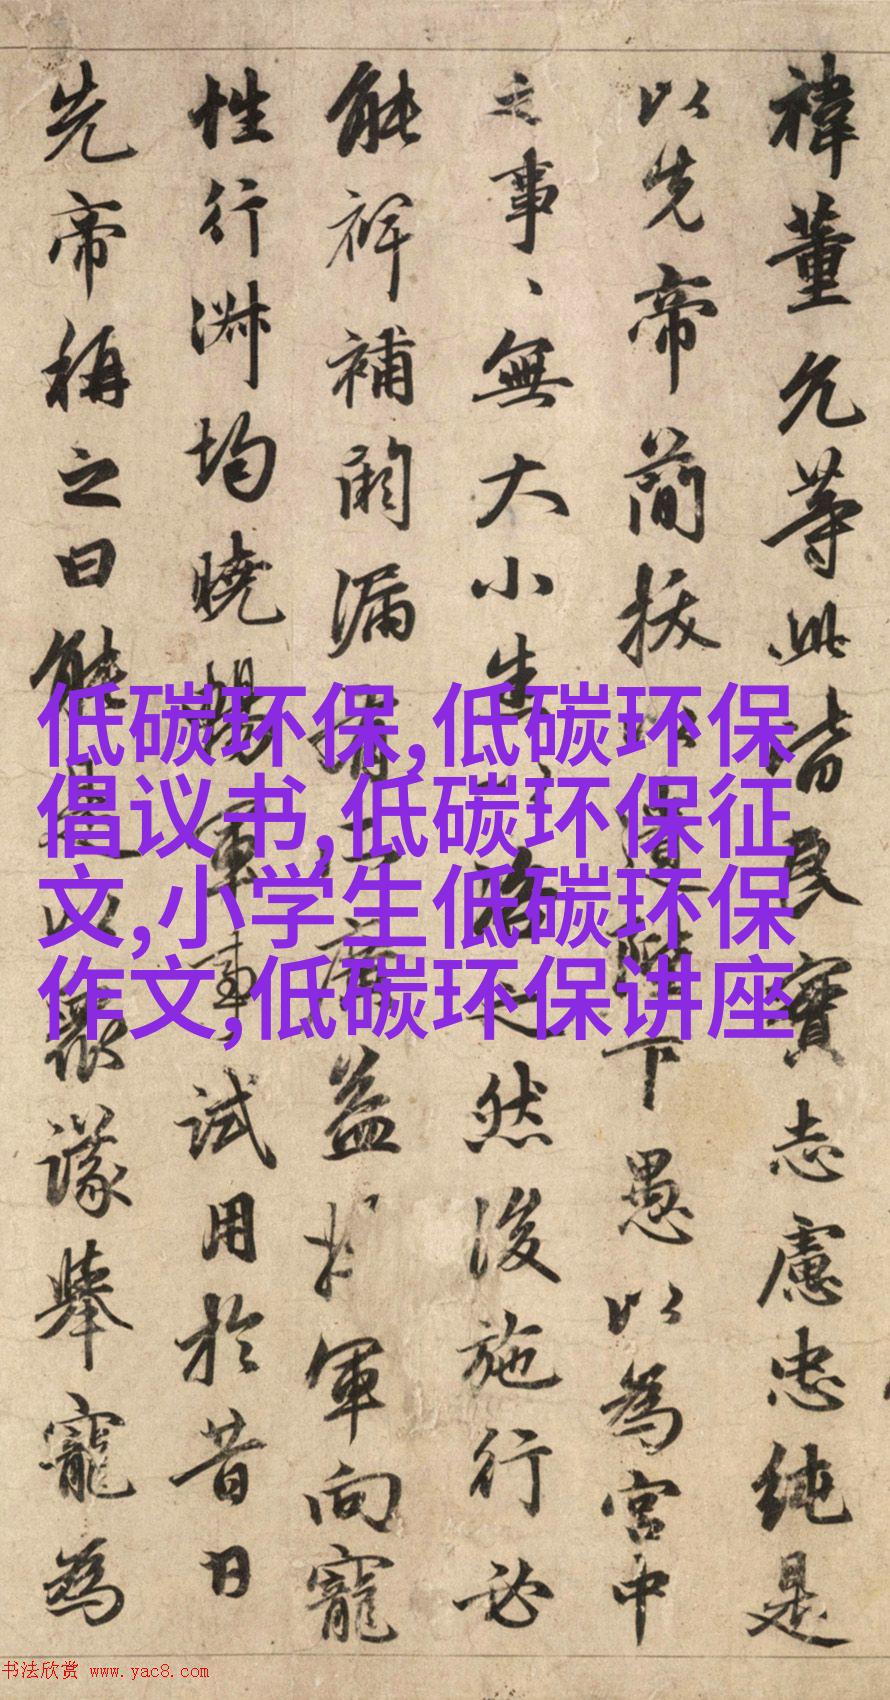 禕董允等此皆良實志慮忠純是
以先帝簡拔以遺陛下愚以為宮中
之事、無大小咨之然後施行必
能裨補闕漏有所廣益將軍向寵
性行淑均曉暢軍事試用於昔日
先帝稱之曰能是以衆議舉寵為
低碳环保,低碳环保
倡议书,低碳环保征
文,小学生低碳环保
作文,低碳环保讲座
书法欣赏 www.yac8.com